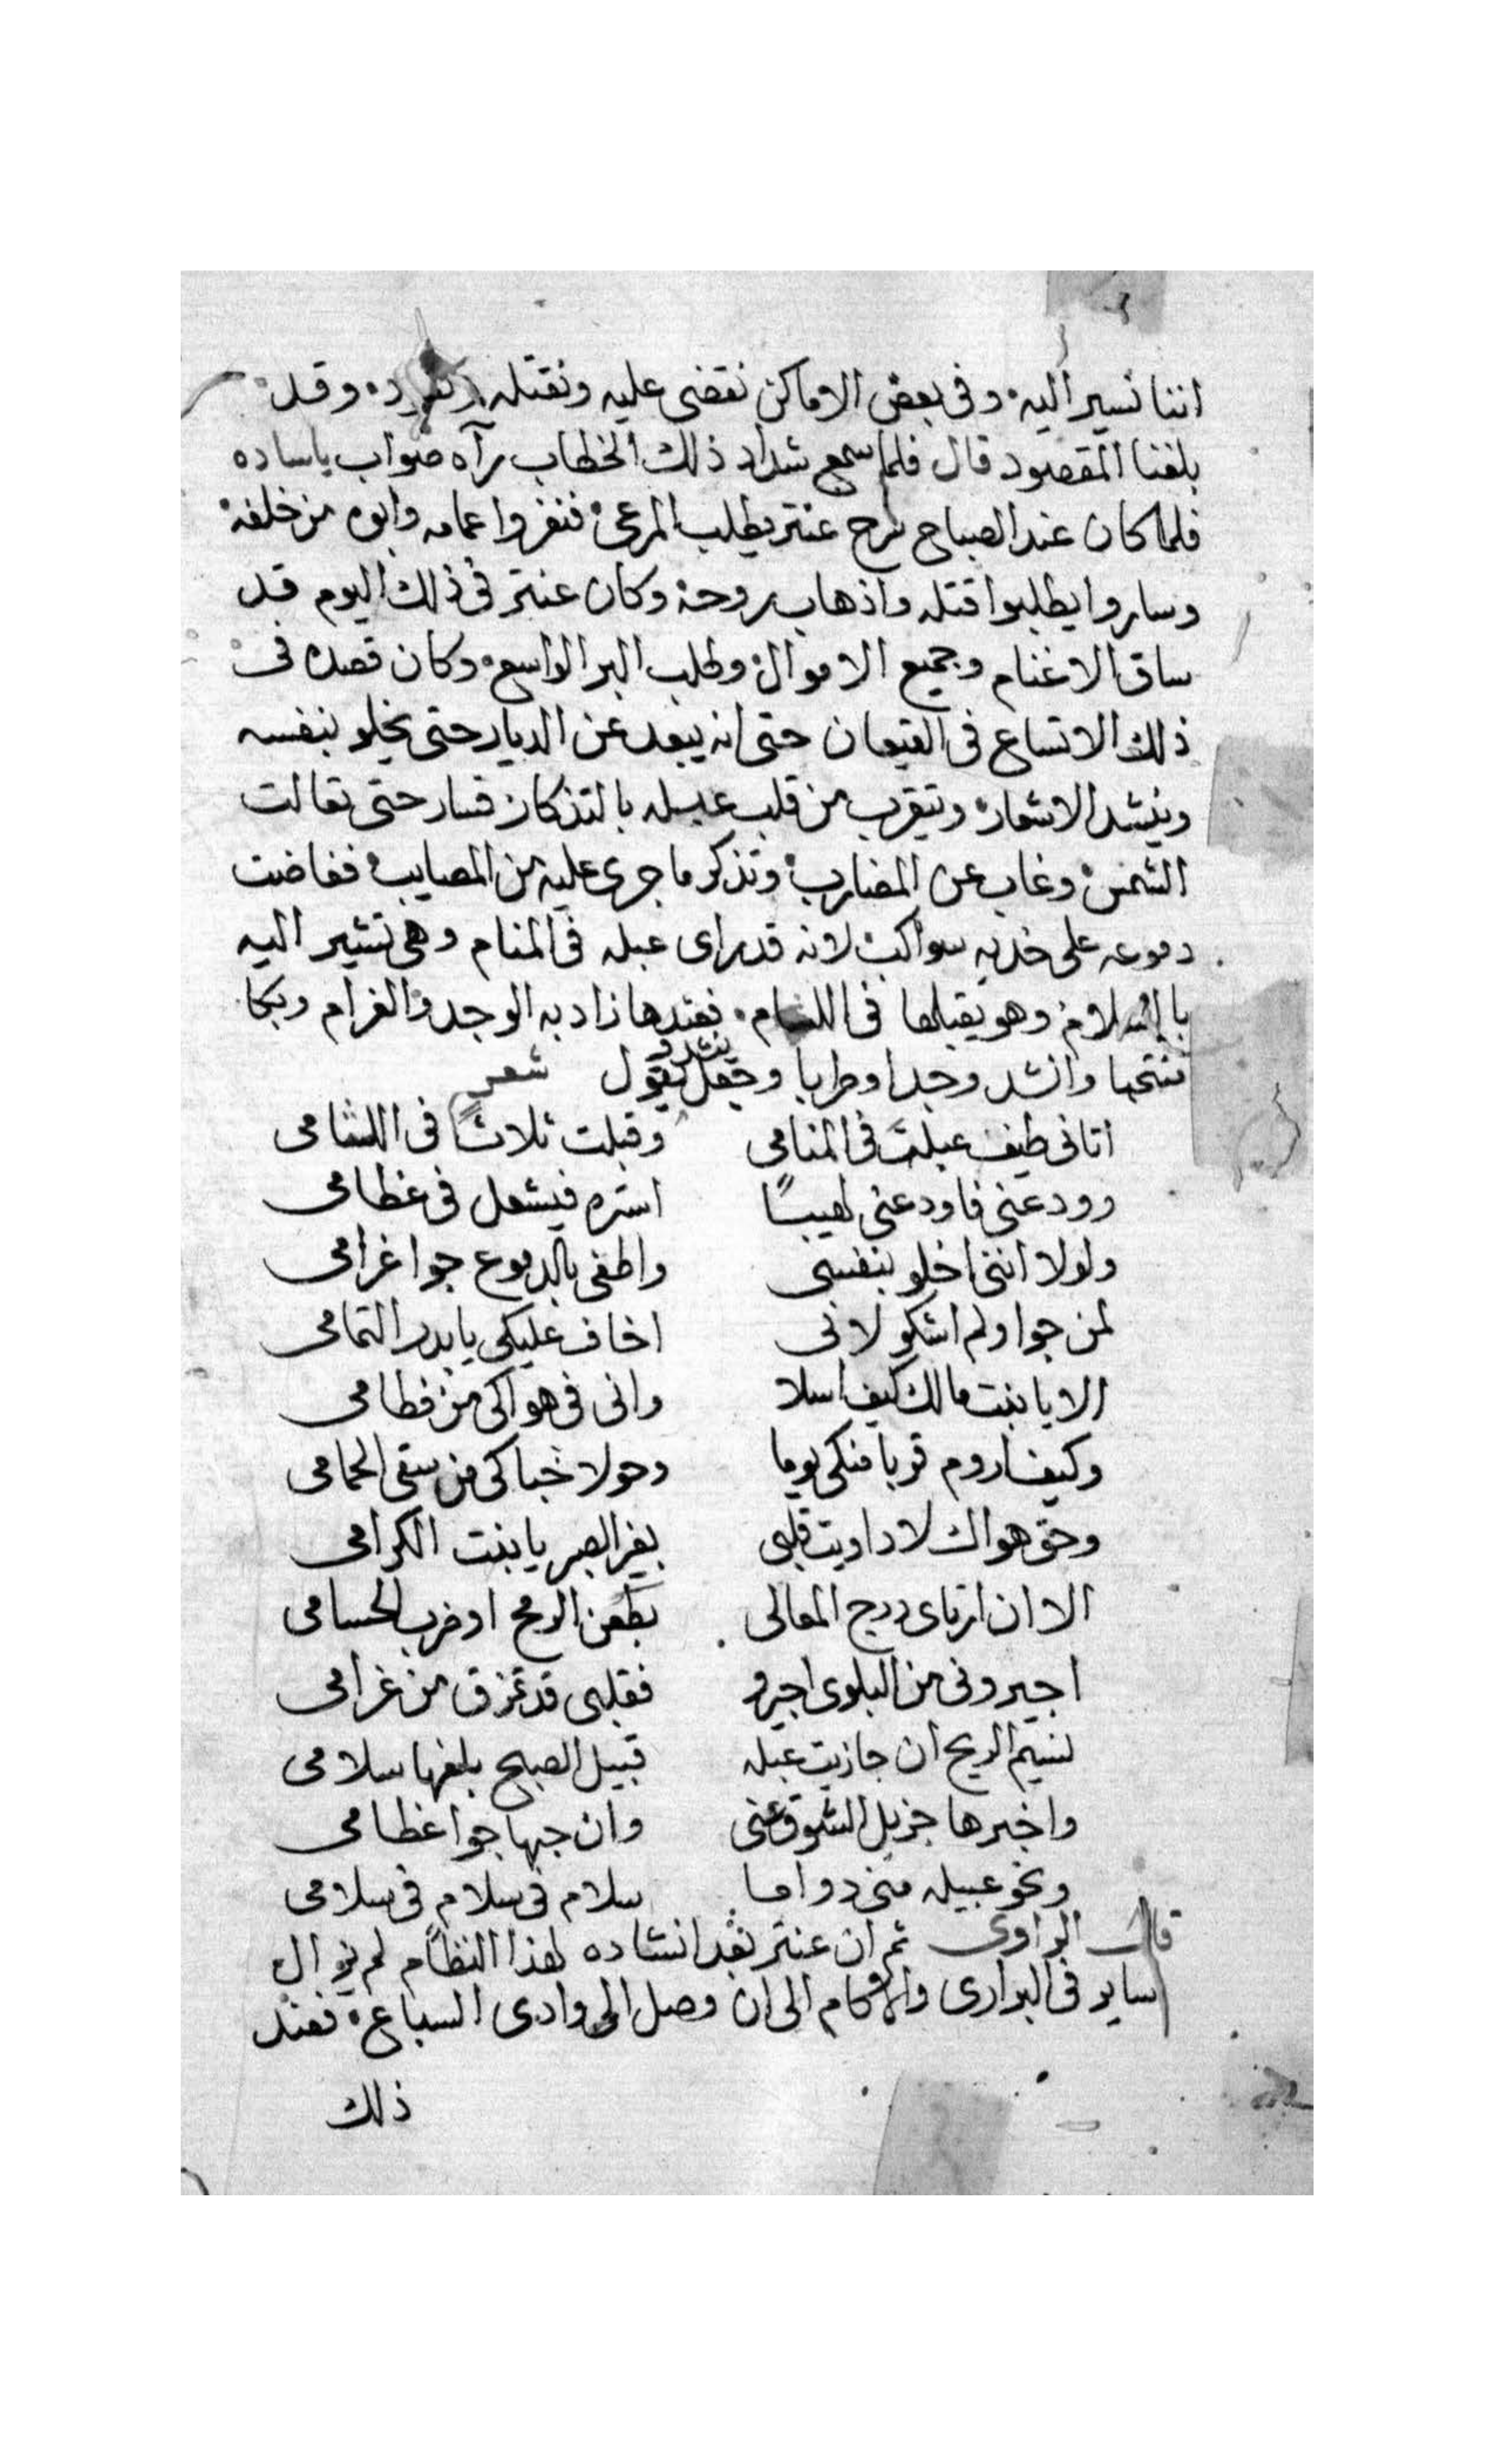 اننا نسير اليه وفى بعض الاماكن نقضى عليه ونقتله وقد
بلغنا المقصود قال فلما سمع شداد ذلك الخطاب رآه صواب ياساده
فلما كان عند الصباح سرح عنتر يطلب المرعى فنفروا عمامه وابوه من خلفه
وساروا يطلبوا قتله واذهاب روحه وكان عنتر فى ذلك اليوم قد
ساق الاغنام وجميع الاموال وطلب البر الواسع وكان قصده فى
ذلك الاتساع فى القيعان حتى انه يبعد عن الديار حتى يخلو بنفسه
وينشد الاشعار ويتقرب من قلب عبله بالتذكار فسار حتى تعالت
الشمس وغاب عن المضارب وتذكر ما جرى عليه من المصايب ففاضت
دموعه على خديه سواكب لانه قد راى عبله فى المنام وهى تشير اليه
بالسلام وهو يقبلها فى اللثام فعندها زاد به الوجد والغرام وبكا
منتحبا وانشد وجدا وطربا وجعل ينشد و يقول شعر
اتانى طيف عبلة فى المنامى وقبلت ثلاثاً فى اللثامى
وودعنى فاودعنى لهيباً استره فيشعل فى عظامى
ولولا اننى اخلو بنفسى واطفى بالدموع جوا غرامى
لمن جوا ولم اشكو لانى اخاف عليكى يابدر التمامى
الا يا بنت مالك كيف اسلا وانى فى هواكى من فطامى
وكيف اروم قربا منكى يوما وحولا خباكى من سقى الحمامى
وحق هواك لا داويت قلبى بغير الصبر يا بنت الكرامى
الا ان ارتاى درج المعالى بطعن الرمح او ضرب الحسامى
اجيرونى من البلوى اجيرو فقلبى قد تمزق من غرامى
نسيم الريح ان جازيت عبله قبيل الصبح بلغها سلامى
واخبرها جزيل الشوق عنى وان حبها جوا عظامى
ونحو عبيله منى دواما سلام فى سلام فى سلامى
قال الراوى ثم ان عنتر بعد انشاده لهذا النظام لم يزال
ساير فى البرارى والاكام الى ان وصل الى وادى السباع فعند
ذلك